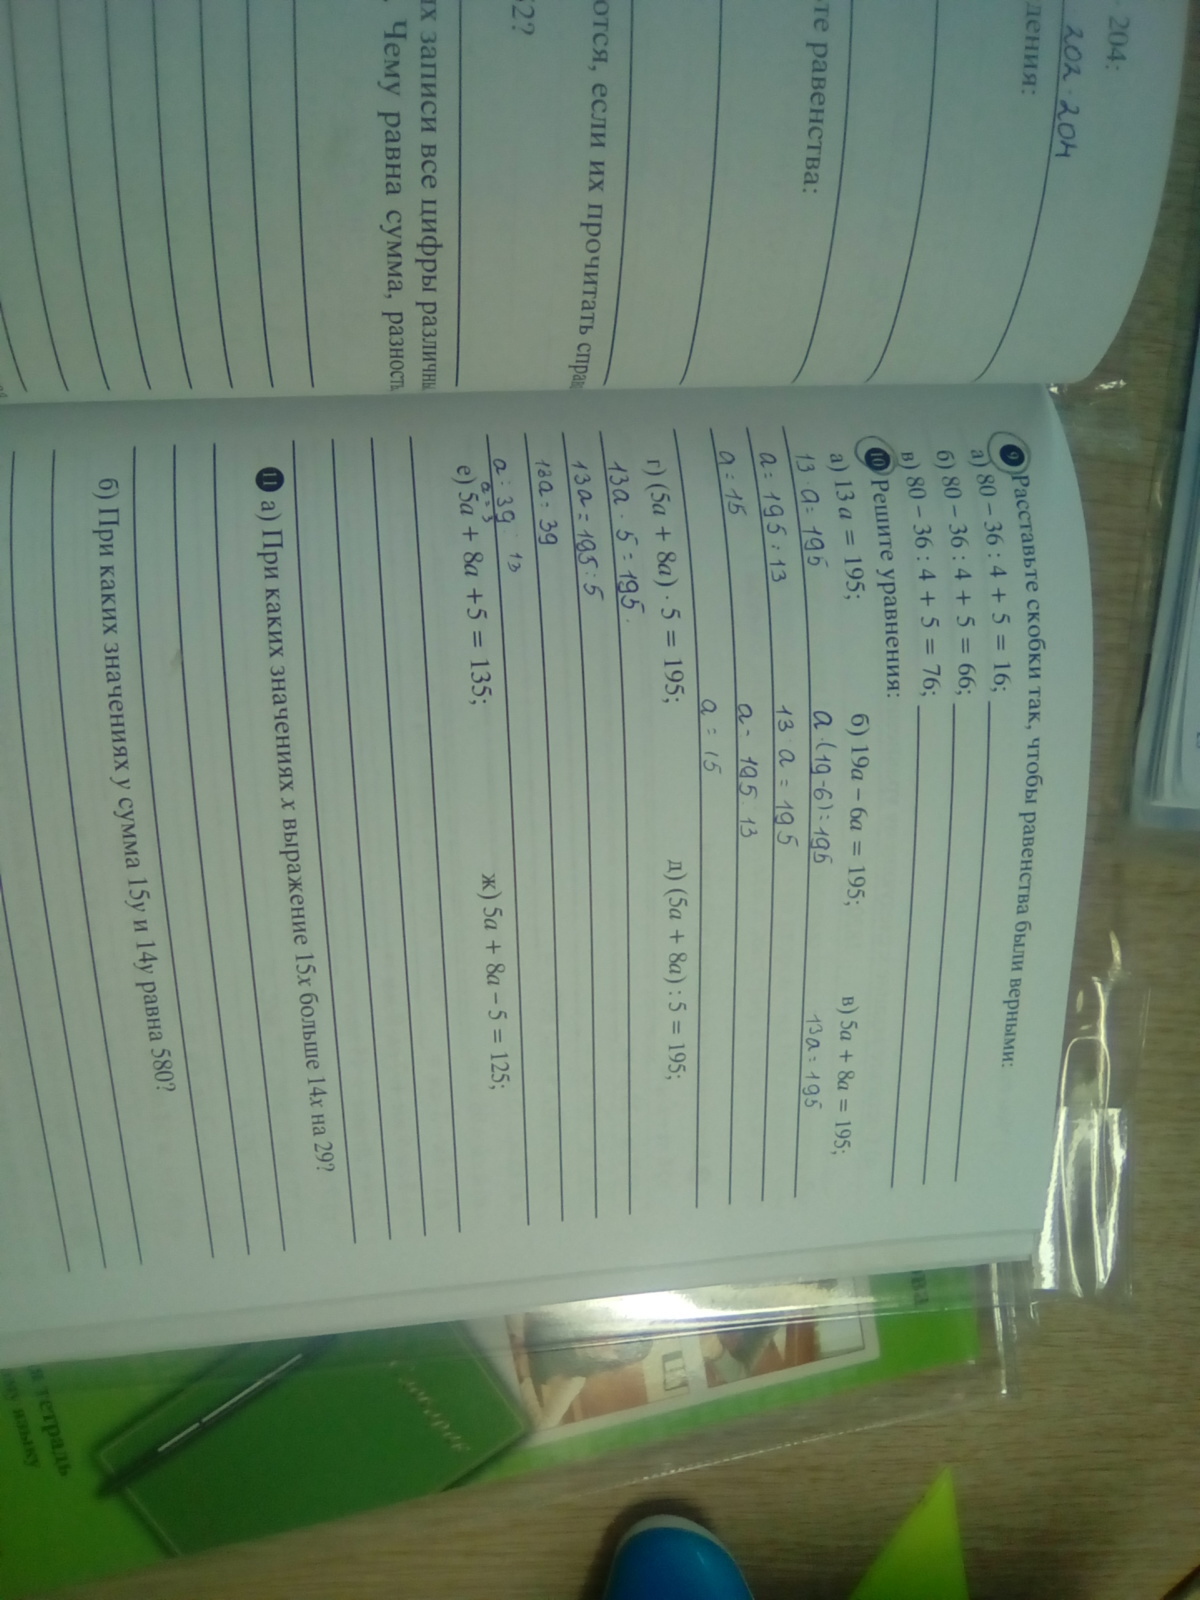 204:
202 · 204
те равенства:
ются, если их прочитать
х записи все цифры
Чему равна сумма, разность
9 Расставьте скобки так, чтобы равенства были верными:
а) 80 – 36 : 4 + 5 = 16;
б) 80 – 36 : 4 + 5 = 66;
в) 80 – 36 : 4 + 5 = 76;
10 Решите уравнения:
а) 13a = 195; б) 19a – 6a = 195; в) 5a + 8a = 195;
13 · a = 195 a · (19-6) = 195 13a = 195
a = 195 : 13 13 · a = 195
a = 15 a = 195 : 13
a = 15
г) (5a + 8a) · 5 = 195; д) (5a + 8a) : 5 = 195;
13a · 5 = 195
13a = 195 : 5
13a = 39
a = 39 : 13
a = 3
е) 5a + 8a + 5 = 135; ж) 5a + 8a – 5 = 125;
11 а) При каких значениях x выражение 15x больше 14x на 29?
б) При каких значениях y сумма 15y и 14y равна 580?
тетрадь
языку